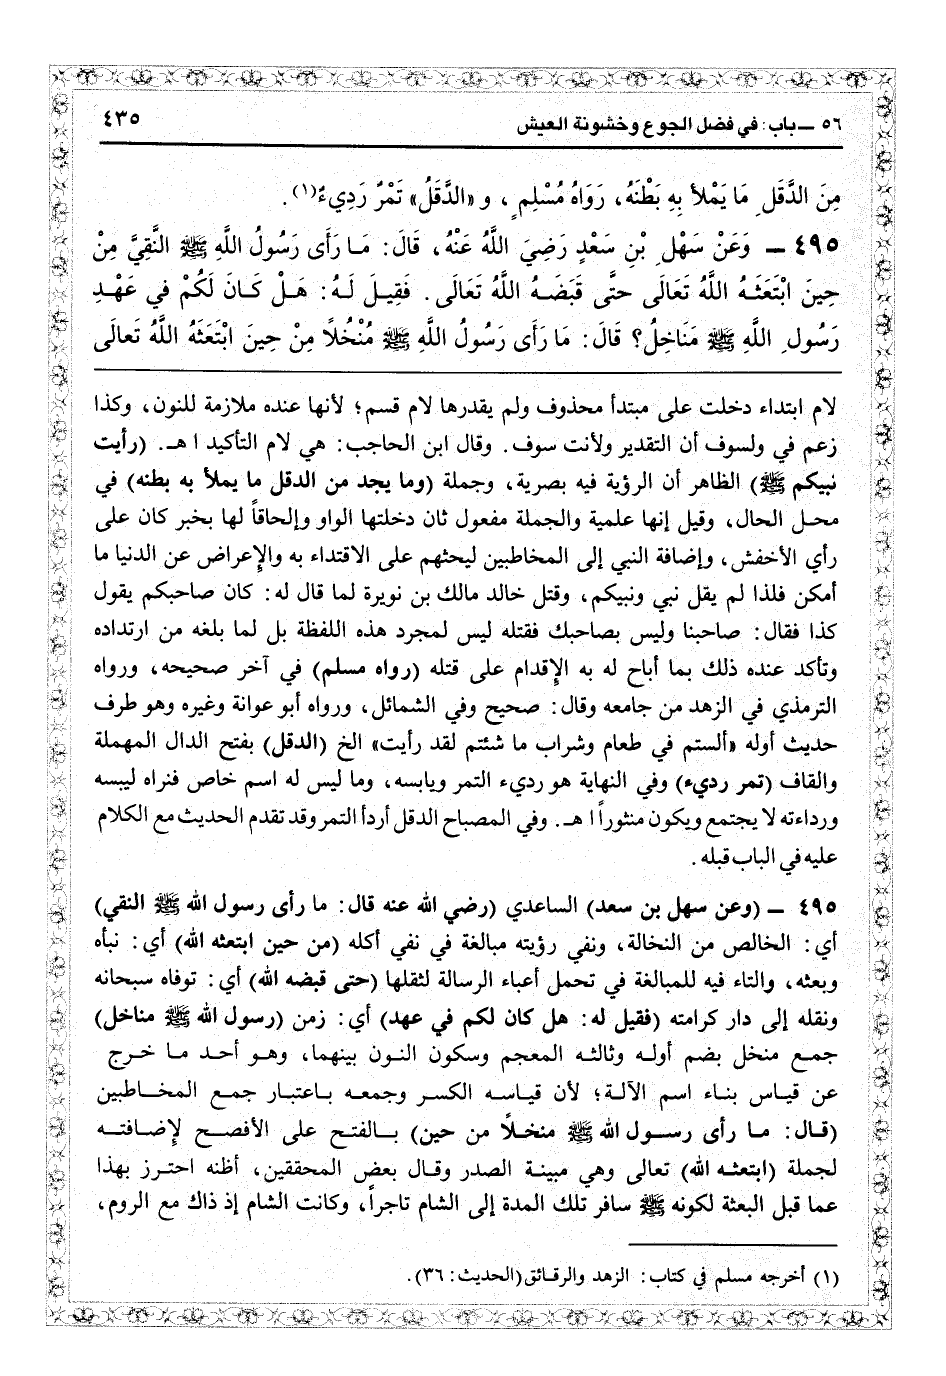 ٥٦ ــ باب: في فضل الجوع وخشونة العيش
٤٣٥
مِنَ الدَّقَلِ مَا يَمْلأ بِهِ بَطْنَهُ، رَوَاهُ مُسْلِمٍ، و «الدَّقَلُ» تَمْرٌ رَدِيءٌ(١).
٤٩٥ ــ وَعَنْ سَهْلِ بْنِ سَعْدٍ رَضِيَ اللَّهُ عَنْهُ، قَالَ: مَا رَأَى رَسُولُ اللَّهِ ﷺ النَّقِيَّ مِنْ
حِينَ ابْتَعَثَـهُ اللَّهُ تَعَالَى حتَّى قَبَضَـهُ اللَّهُ تَعَالَى. فَقِيـلَ لَـهُ: هَـلْ كَـانَ لَكُمْ في عَهْدِ
رَسُولِ اللَّهِ ﷺ مَنَاخِلُ؟ قَالَ: مَا رَأَى رَسُولُ اللَّهِ ﷺ مُنْخُلاً مِنْ حِينَ ابْتَعَثَهُ اللَّهُ تَعَالَى
لام ابتداء دخلت على مبتدأ محذوف ولم يقدرها لام قسم؛ لأنها عنده ملازمة للنون، وكذا
زعم في ولسوف أن التقدير ولأنت سوف. وقال ابن الحاجب: هي لام التأكيد ا هـ. (رأيت
نبيكم ﷺ) الظاهر أن الرؤية فيه بصرية، وجملة (وما يجد من الدقل ما يملأ به بطنه) في
محـل الحال، وقيل إنها علمية والجملة مفعول ثان دخلتها الواو وإلحاقاً لها بخبر كان على
رأي الأخفش، وإضافة النبي إلى المخاطبين ليحثهم على الاقتداء به والإعراض عن الدنيا ما
أمكن فلذا لم يقل نبي ونبيكم، وقتل خالد مالك بن نويرة لما قال له: كان صاحبكم يقول
كذا فقال: صاحبنا وليس بصاحبك فقتله ليس لمجرد هذه اللفظة بل لما بلغه من ارتداده
وتأكد عنده ذلك بما أباح له به الإقدام على قتله (رواه مسلم) في آخر صحيحه، ورواه
الترمذي في الزهد من جامعه وقال: صحيح وفي الشمائل، ورواه أبو عوانة وغيره وهو طرف
حديث أوله «ألستم في طعام وشراب ما شئتم لقد رأيت» الخ (الدقل) بفتح الدال المهملة
والقاف (تمر رديء) وفي النهاية هو رديء التمر ويابسه، وما ليس له اسم خاص فنراه ليبسه
ورداءته لا يجتمع ويكون منثوراً ا هـ. وفي المصباح الدقل أردأ التمر وقد تقدم الحديث مع الكلام
عليه في الباب قبله.
٤٩٥ ــ (وعن سهل بن سعد) الساعدي (رضي الله عنه قال: ما رأى رسول الله ﷺ النقي)
أي: الخالص من النخالة، ونفي رؤيته مبالغة في نفي أكله (من حين ابتعثه الله) أي: نبأه
وبعثه، والتاء فيه للمبالغة في تحمل أعباء الرسالة لثقلها (حتى قبضه الله) أي: توفاه سبحانه
ونقله إلى دار كرامته (فقيل له: هل كان لكم في عهد) أي: زمن (رسول الله ﷺ مناخل)
جمـع منخل بضم أولـه وثالثـه المعجم وسكون النـون بينهما، وهـو أحـد مـا خـرج
عن قياس بناء اسم الآلـة؛ لأن قيـاسـه الكسر وجمعـه بـاعتبار جمـع المخـاطبين
(قـال: مـا رأى رسـول الله ﷺ منخـلاً من حين) بـالفتـح على الأفصـح لإضـافتـه
لجملة (ابتعثـه الله) تعالى وهي مبينـة الصدر وقـال بعض المحققين، أظنه احتـرز بهذا
عمـا قبل البعثة لكونه ﷺ سافر تلك المدة إلى الشام تاجراً، وكانت الشام إذ ذاك مع الروم،
(١) أخرجه مسلم في كتاب: الزهد والرقـائق (الحديث: ٣٦).